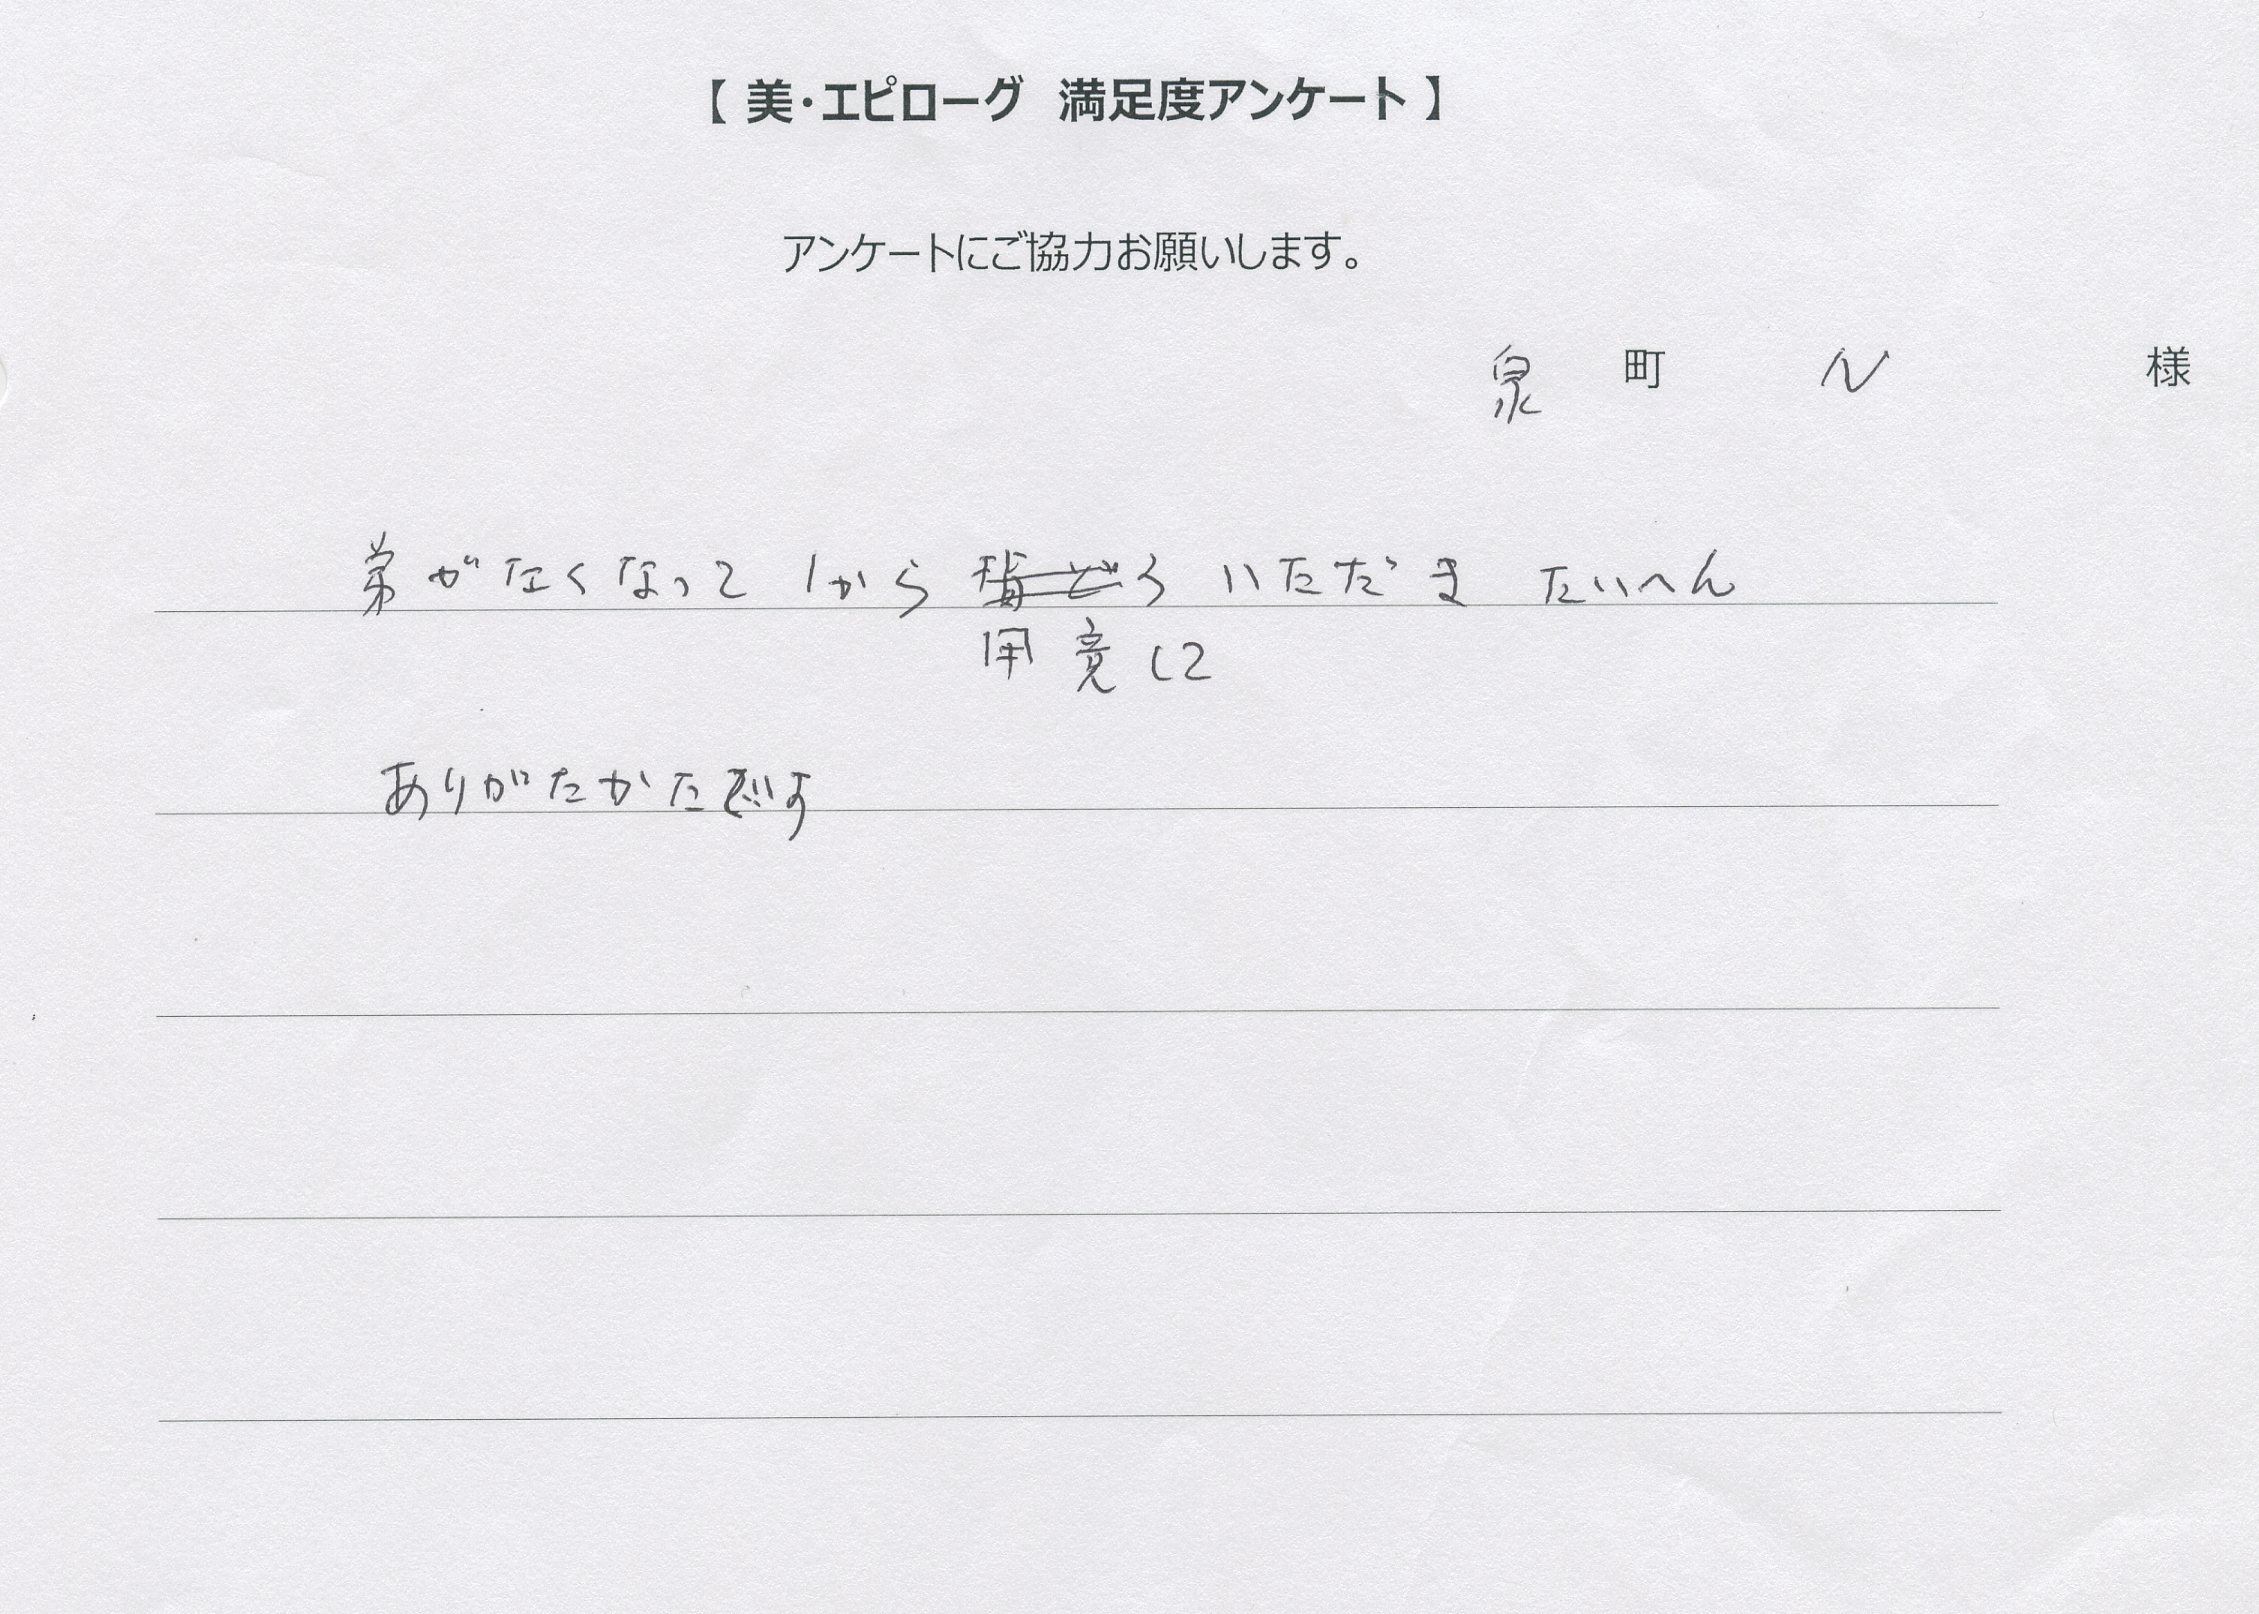 【 美・エピローグ 満足度アンケート 】
アンケートにご協力お願いします。
泉 町 N 様
弟がなくなって 1から いただま たいへん
用意して
ありがたかたです